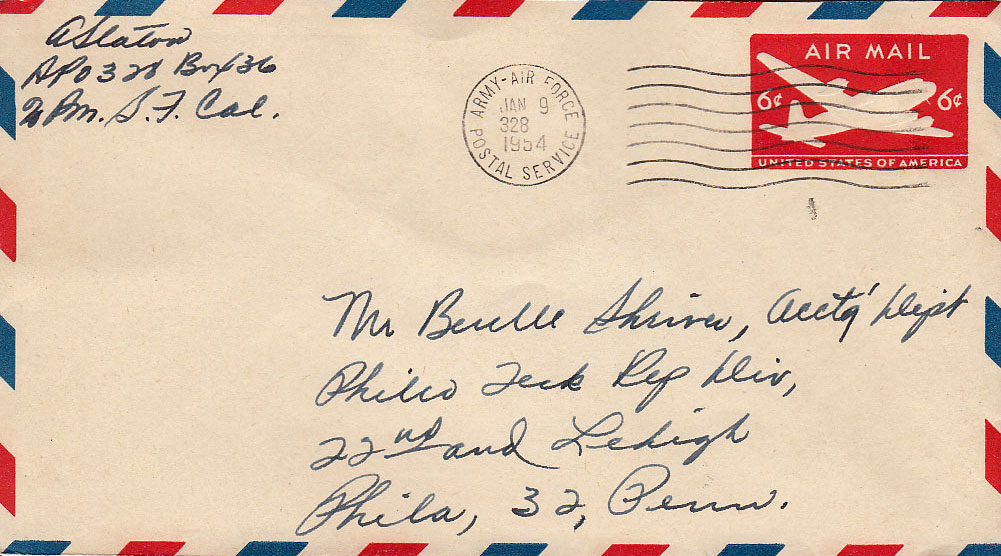 A Slaton
APO 328 Box 36
% Pm. S. F. Cal.
ARMY-AIR FORCE
JAN 9
328
1954
POSTAL SERVICE
AIR MAIL
6¢ 6¢
UNITED STATES OF AMERICA
Mr Berelle Shriver, Acct'g Dept
Philco Teck Rep Div,
22nd and Lehigh
Phila, 32, Penn.